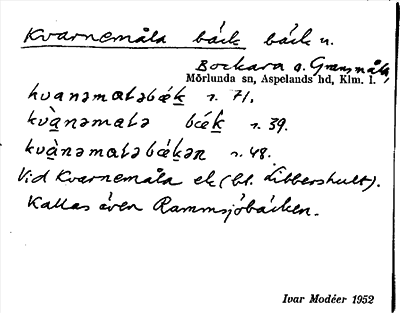 Kvarnemåla bäck bäck n.
Bockara o. Gransmåla,
Mörlunda sn, Aspelands hd, Klm. l.
kvanəmaləbæk r. 71.
kvànəmalə bæk r. 39.
kvànəmaləbækən r. 48.
Vid Kvarnemåla ek (bl. Libbershult).
Kallas även Rammsjöbäcken.
Ivar Modéer 1952